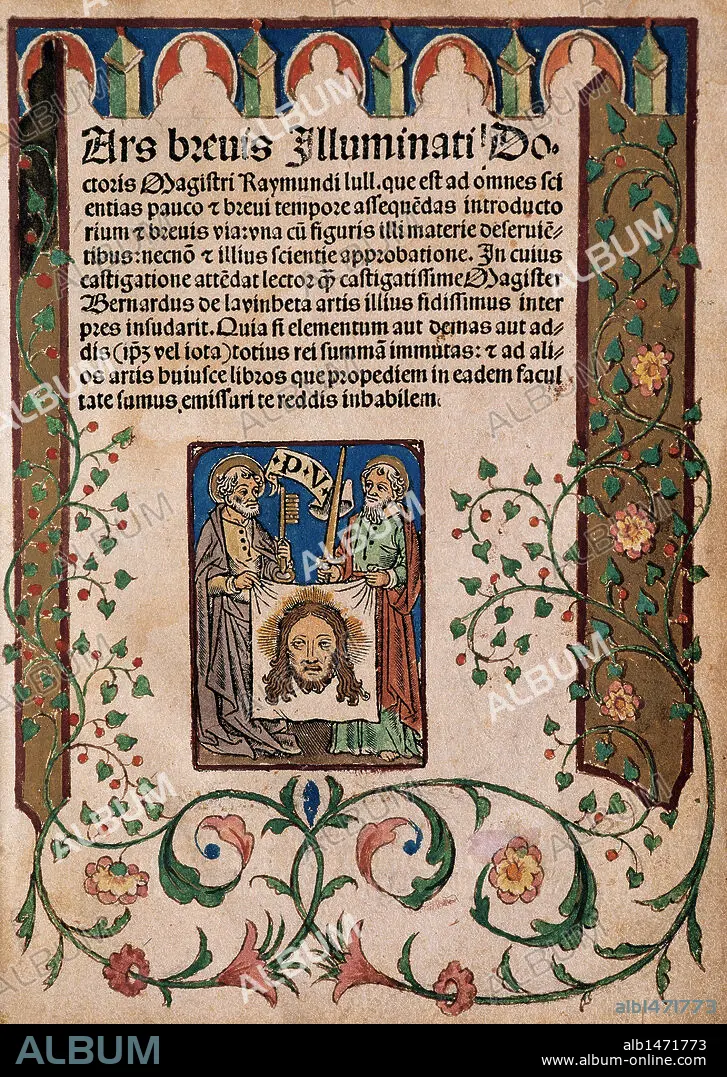 Ars breuis Illuminati Do⸗
ctoris Magistri Raymundi lull. que est ad omnes sci
entias pauco ⁊ breui tempore assequēdas introducto
rium ⁊ breuis via: vna cū figuris illi materie deseruiē⸗
tibus: necnō ⁊ illius scientie approbatione. In cuius
castigatione attēdat lector qȝ castigatissime Magister
Bernardus de lavinheta artis illius fidissimus inter
pres insudarit. Quia si elementum aut demas aut ad⸗
dis (ipȝ vel iota) totius rei summā immutas: ⁊ ad ali⸗
os artis huiusce libros que propediem in eadem facul
tate sumus emissuri te reddis inhabilem.
P. V.
alb1471773
ALBUM
alb1471773
www.album-online.com